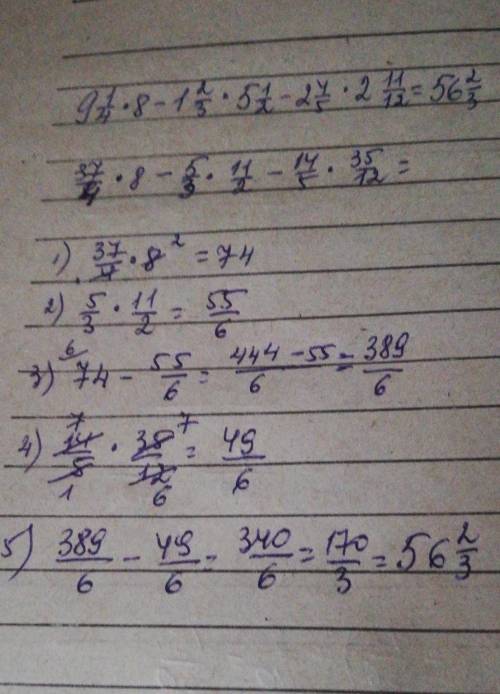 9 1/4 · 8 - 1 2/3 · 5 1/2 - 2 4/5 · 2 11/12 = 56 2/3
37/4 · 8 - 5/3 · 11/2 - 14/5 · 35/12 =
1) 37/4 · 8 2 = 74
2) 5/3 · 11/2 = 55/6
3) 6 74 - 55/6 = 444 - 55/6 = 389/6
4) 7 14/5 1 · 35 7/12 6 = 49/6
5) 389/6 - 49/6 = 340/6 = 170/3 = 56 2/3